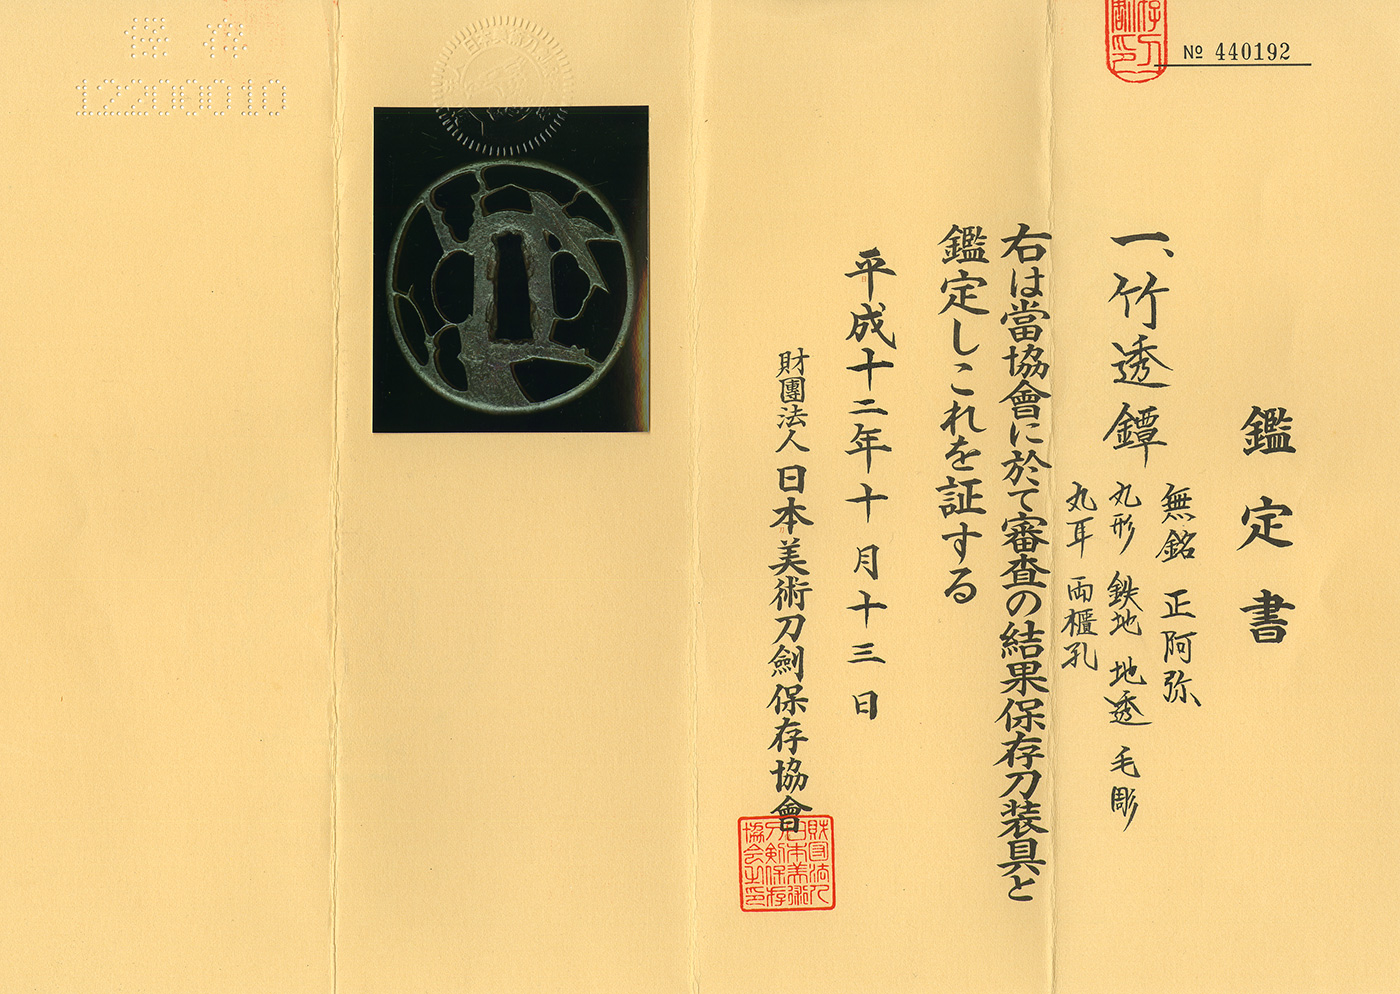 № 440192
鑑定書
一、竹透鐔
無銘 正阿弥
丸形 鉄地 地透 毛彫
丸耳 両櫃孔
右は當協會に於て審査の結果保存刀装具と
鑑定しこれを証する
平成十二年十月十三日
財團法人日本美術刀劍保存協會
財団法人
日本美術
刀剣保存
協会之印
保存
12206010